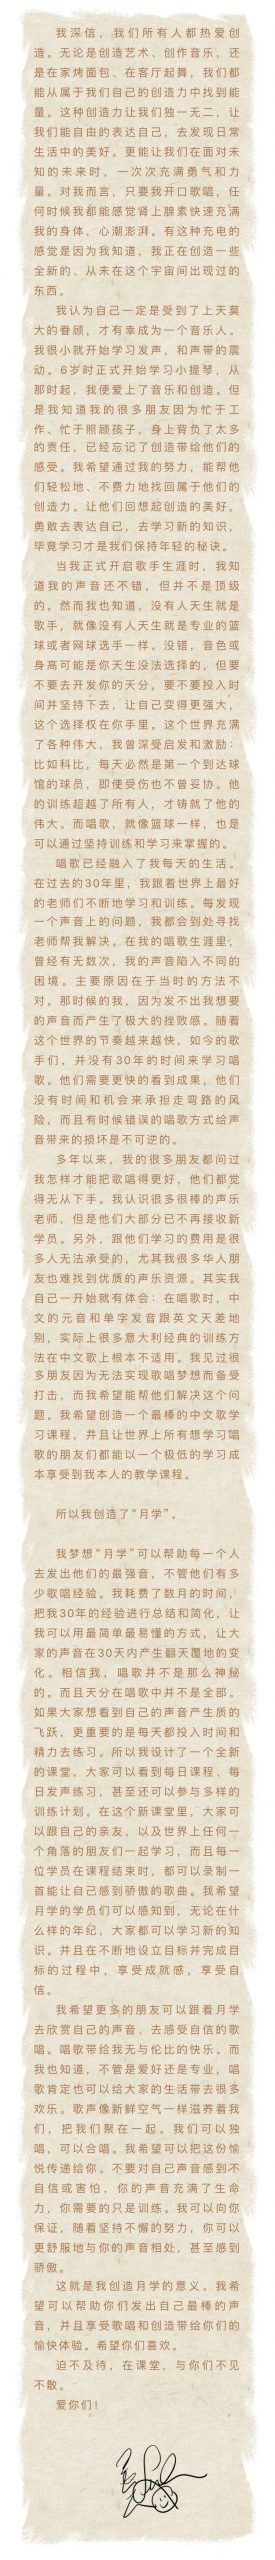 我深信，我们所有人都热爱创
造。无论是创造艺术、创作音乐，还
是在家烤面包、在客厅起舞，我们都
能从属于我们自己的创造力中找到能
量。这种创造力让我们独一无二，让
我们能自由的表达自己，去发现日常
生活中的美好。更能让我们在面对未
知的未来时，一次次充满勇气和力
量。对我而言，只要我开口歌唱，任
何时候我都能感觉肾上腺素快速充满
我的身体，心潮澎湃。有这种充电的
感觉是因为我知道，我正在创造一些
全新的、从未在这个宇宙间出现过的
东西。
我认为自己一定是受到了上天莫
大的眷顾，才有幸成为一个音乐人。
我很小就开始学习发声，和声带的震
动。6岁时正式开始学习小提琴，从
那时起，我便爱上了音乐和创造。但
是我知道我的很多朋友因为忙于工
作、忙于照顾孩子，身上背负了太多
的责任，已经忘记了创造带给他们的
感受。我希望通过我的努力，能帮他
们轻松地、不费力地找回属于他们的
创造力。让他们回想起创造的美好，
勇敢去表达自己，去学习新的知识，
毕竟学习才是我们保持年轻的秘诀。
当我正式开启歌手生涯时，我知
道我的声音还不错，但并不是顶级
的。然而我也知道，没有人天生就是
歌手，就像没有人天生就是专业的篮
球或者网球选手一样。没错，音色或
身高可能是你天生没法选择的，但要
不要去开发你的天分，要不要投入时
间并坚持下去，让自己变得更强大，
这个选择权在你手里。这个世界充满
了各种伟大，我曾深受启发和激励：
比如科比，每天必然是第一个到达球
馆的球员，即使受伤也不曾妥协。他
的训练超越了所有人，才铸就了他的
伟大。而唱歌，就像篮球一样，也是
可以通过坚持训练和学习来掌握的。
唱歌已经融入了我每天的生活。
在过去的30年里，我跟着世界上最好
的老师们不断地学习和训练。每发现
一个声音上的问题，我都会到处寻找
老师帮我解决。在我的唱歌生涯里，
曾经有无数次，我的声音陷入不同的
困境。主要原因在于当时的方法不
对。那时候的我，因为发不出我想要
的声音而产生了极大的挫败感。随着
这个世界的节奏越来越快，如今的歌
手们，并没有30年的时间来学习唱
歌。他们需要更快的看到成果，他们
没有时间和机会来承担走弯路的风
险，而且有时候错误的唱歌方式给声
音带来的损坏是不可逆的。
多年以来，我的很多朋友都问过
我怎样才能把歌唱得更好，他们都觉
得无从下手。我认识很多很棒的声乐
老师，但是他们大部分已不再接收新
学员。另外，跟他们学习的费用是很
多人无法承受的，尤其我很多华人朋
友也难找到优质的声乐资源。其实我
自己一开始就有体会：在唱歌时，中
文的元音和单字发音跟英文天差地
别，实际上很多意大利经典的训练方
法在中文歌上根本不适用。我见过很
多朋友因为无法实现歌唱梦想而备受
打击，而我希望能帮他们解决这个问
题。我希望创造一个最棒的中文歌学
习课程，并且让世界上所有想学习唱
歌的朋友们都能以一个极低的学习成
本享受到我本人的教学课程。
所以我创造了“月学”。
我梦想“月学”可以帮助每一个人
去发出他们的最强音，不管他们有多
少歌唱经验。我耗费了数月的时间，
把我30年的经验进行总结和简化，让
我可以用最简单最易懂的方式，让大
家的声音在30天内产生翻天覆地的变
化。相信我，唱歌并不是那么神秘
的。而且天分在歌唱中并不是全部。
如果大家想看到自己的声音产生质的
飞跃，更重要的是每天都投入时间和
精力去练习。所以我设计了一个全新
的课堂，大家可以看到每日课程、每
日发声练习，甚至还可以参与多样的
训练计划。在这个新课堂里，大家可
以跟自己的亲友，以及世界上任何一
个角落的朋友们一起学习，而且每一
位学员在课程结束时，都可以录制一
首能让自己感到骄傲的歌曲。我希望
月学的学员们可以感知到，无论在什
么样的年纪，大家都可以学习新的知
识。并且在不断地设立目标并完成目
标的过程中，享受成就感，享受自
信。
我希望更多的朋友可以跟着月学
去欣赏自己的声音、去感受自信的歌
唱。唱歌带给我无与伦比的快乐。而
我也知道，不管是爱好还是专业，唱
歌肯定也可以给大家的生活带去很多
欢乐。歌声像新鲜空气一样滋养着我
们，把我们聚在一起。我们可以独
唱，可以合唱。我希望可以把这份愉
悦传递给你。不要对自己声音感到不
自信或害怕，你的声音充满了生命
力，你需要的只是训练。我可以向你
保证，随着坚持不懈的努力，你可以
更舒服地与你的声音相处，甚至感到
骄傲。
这就是我创造月学的意义。我希
望可以帮助你们发出自己最棒的声
音，并且享受歌唱和创造带给你们的
愉快体验。希望你们喜欢。
迫不及待，在课堂，与你们不见
不散。
爱你们！